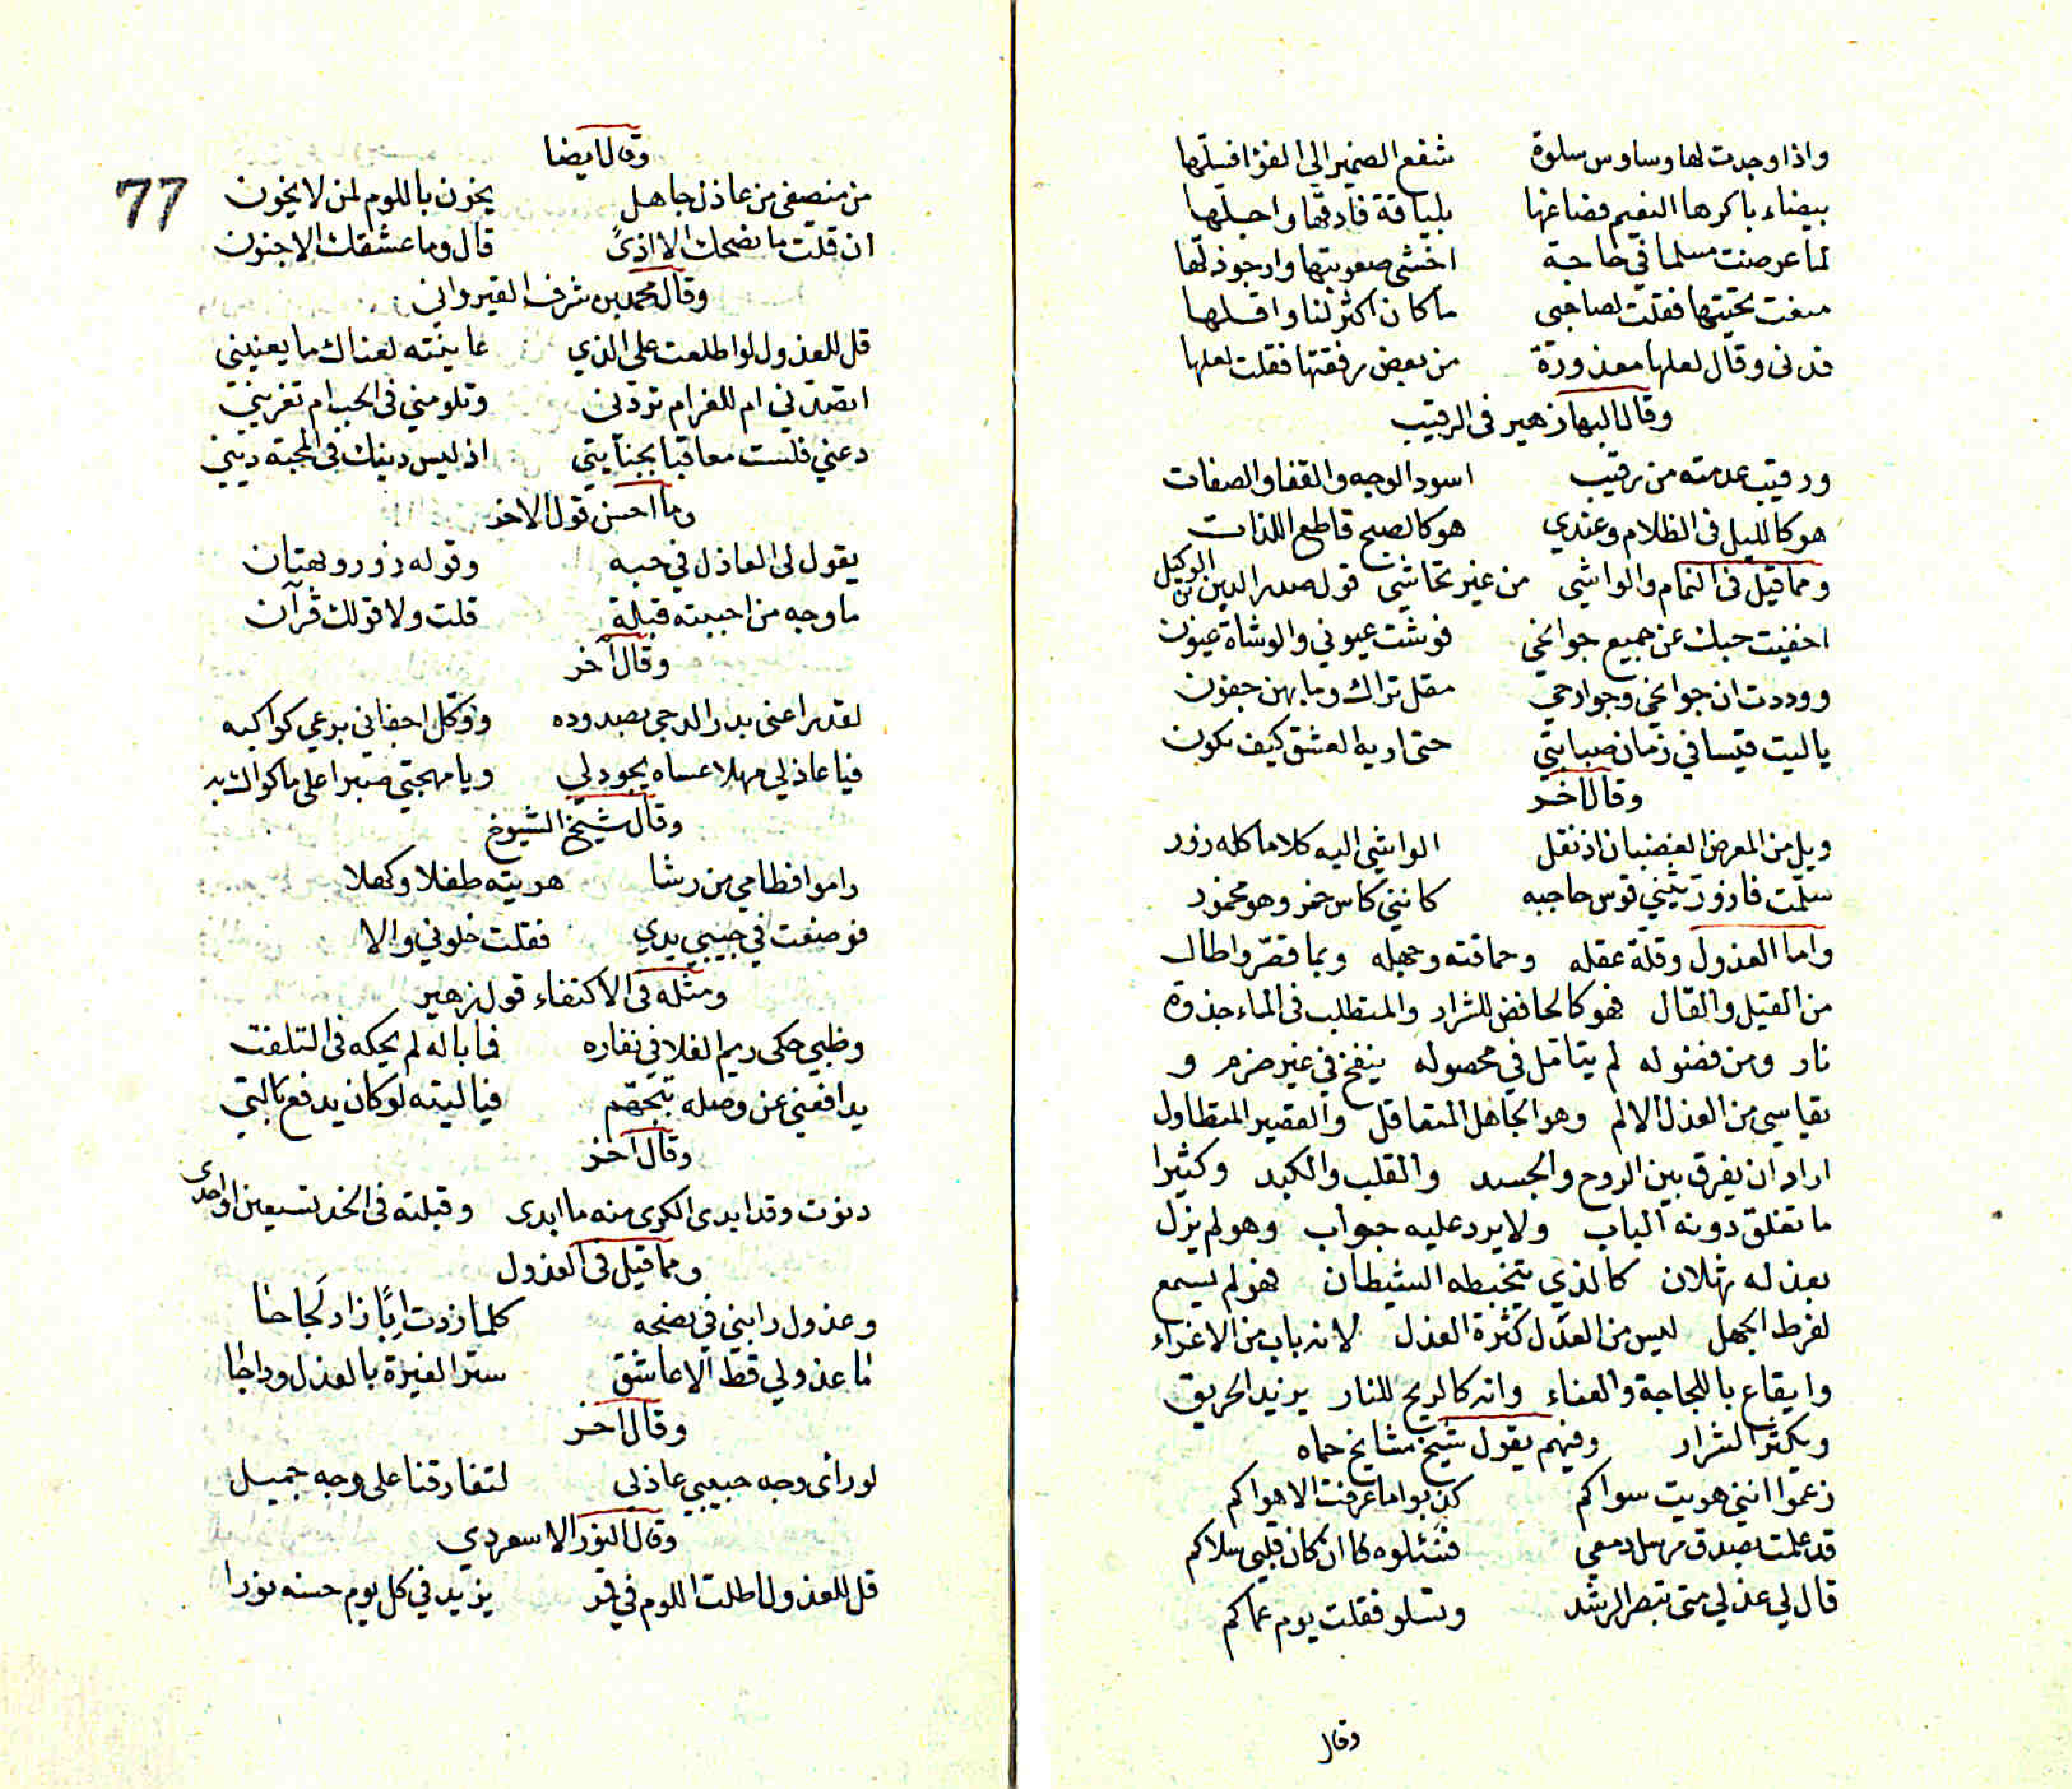 واذا وجدت لها وساوس سلوة شفع الضمير الى الفؤاد فسلّها
بيضاء باكرها النعيم فصاغها بلباقة فادقّها واجلّها
لما عرضت مسلما في حاجة اخشى صعوبتها وارجو ذلّها
منعت تحيّتها فقلت لصاحبي ما كان اكثر لنا واقلها
فدنى وقال لعلها معذورة من بعض رفقتها فقلت لعلها
وقال البها زهير فى الرقيب
ورقيب عدمته من رقيب اسود الوجه والقفا والصفات
هو كالليل فى الظلام وعندي هو كالصبح قاطع اللذات
ومما قيل فى النمام والواشي من غير تحاشي قول صدر الدين بن الوكيل
اخفيت حبك عن جميع جوانحي فوشت عيوني والوشاة عيون
ووددت ان جوانحي وجوارحي مقل تراك وما بهن جفون
ياليت قيسا في زمان صبابتي حتى اريه العشق كيف يكون
وقال اخر
ويلي من المعرض الغضبان اذ نقل الواشي اليه كلاما كله زور
سلّمت فازورّ يثني قوس حاجبه كانني كاس خمر وهو مخمور
واما العذول وقلة عقله وحماقته وجهله وبما قصّر واطال
من القيل والقال فهو كالحافض للشرار والمتطلب فى الماء جذوة
نار ومن فضوله لم يتامّل في محصوله ينفخ في غير ضرم و
يقاسي من العذل الالم وهو الجاهل المتعاقل والقصير المتطاول
اراد ان يفرق بين الروح والجسد والقلب والكبد وكثيرا
ما تغلق دونه الباب ولا يرد عليه جواب وهو لم يزل
بعذله ثهلان كالذي يتخبطه الشيطان فهو لم يسمع
لفرط الجهل ليس من العدل كثرة العذل لانه باب من الاغراء
وايقاع باللجاجة والعناء وانه كالريح للنار يزيد الحريق
ويكثر الشرار وفيهم يقول شيخ مشايخ حماه
زعموا انني هويت سواكم كذبوا ما عرفت الا هواكم
قد علمت بصدق مرسل دمعي فسئلوه ان كان قلبي سلاكم
قال لي عذلي متى تبصر الرشد وتسلو فقلت يوم عماكم
وقال
77
وقال ايضا
من منصفي من عاذل جاهل يخون باللوم لمن لا يخون
ان قلت ما نصحك الا اذىً قال وما عشقك الا جنون
وقال محمد بن شرف القيرواني
قل للعذول لو اطلعت على الذي عاينته لعناك ما يعنيني
اتصدّني ام للغرام تردّني وتلومني في الحب ام تغريني
دعني فلست معاقبا بجنايتي اذ ليس دينك في المحبة ديني
وما احسن قول الاخر
يقول لى العاذل في حبه وقوله زور وبهتان
ما وجه من احببته قبلة قلت ولا قولك قرآن
وقال آخر
لقد راعنى بدر الدجى بصدوده ووكّل اجفاني برعي كواكبه
فيا عاذلي مهلا عساه يجود لي ويا مهجتي صبرا على ما كواك به
وقال شيخ الشيوخ
راموا فطامي من رشا هويته طفلا وكهلا
فوضعت في جيبي يدي فقلت خلوني والا
ومثله فى الاكتفاء قول زهير
وظبي حكى ريم الفلا في نفاره فما باله لم يحكه فى التلفت
يدافعني عن وصله بتجهّم فياليته لو كان يدفع بالتي
وقال آخر
دنوت وقد ابدى الكرى منه ما ابدى وقبلته فى الخد تسعين او احدى
ومما قيل فى العذول
وعذول رابني في نصحه كلما زدت إبًا زاد لَجاجا
ما عذولي قط الا عاشق ستر الغيرة بالعذل وداجا
وقال اخر
لو رأى وجه حبيبي عاذلى لتفارقنا على وجه جميل
وقال النور الاسعردي
قل للعذول اطلت اللوم في قمر يزيد في كل يوم حسنه نورا